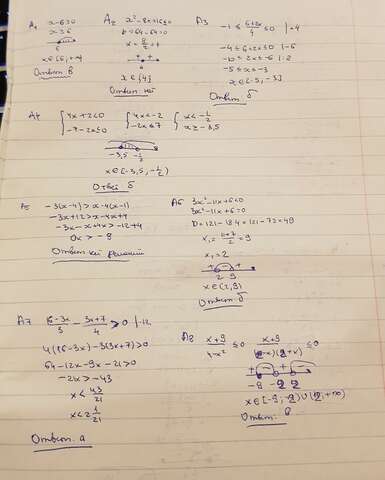 A1
x-6≥0
x≥6
6
x∈[6,+∞)
Ответ: в
A2
x²-8x+16≤0
D=64-64=0
x=8/2=4
+ +
4
x∈{4}
Ответ:
A3
-1≤(6+2x)/4≤0 |·4
-4≤6+2x≤0 |-6
-10≤2x≤-6 |:2
-5≤x≤-3
x∈[-5,-3]
Ответ: б
A4
{4x+2<0
-7-2x≤0
{4x<-2
-2x≤7
{x<-1/2
x≥-3,5
-3,5 -1/2
x∈[-3,5,-1/2)
Ответ: б
A5
-3(x-4)>x-4(x-1)
-3x+12>x-4x+4
-3x-x+4x>-12+4
0x>-8
Ответ: нет решений
A6
3x²-11x+6<0
3x²-11x+6=0
D=121-18·4=121-72=49
x₁=(11+7)/2=9
x₂=2
+ - +
2 9
x∈(2,9)
Ответ: б
A7
(16-3x)/3-(3x+7)/4>0 |·12
4(16-3x)-3(3x+7)>0
64-12x-9x-21>0
-21x>-43
x<43/21
x<2 1/21
Ответ: а
A8
(x+9)/(4-x²)≤0
(x+9)/((2-x)(2+x))≤0
+ - + -
-9 -2 2
x∈[-9,-2)∪(2,+∞)
Ответ: в